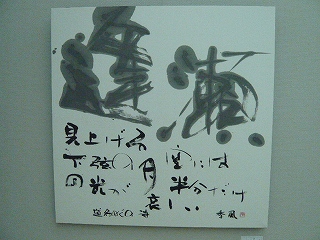 逢瀬
見上げる空には
下弦の月半分だけ
の光が哀しい